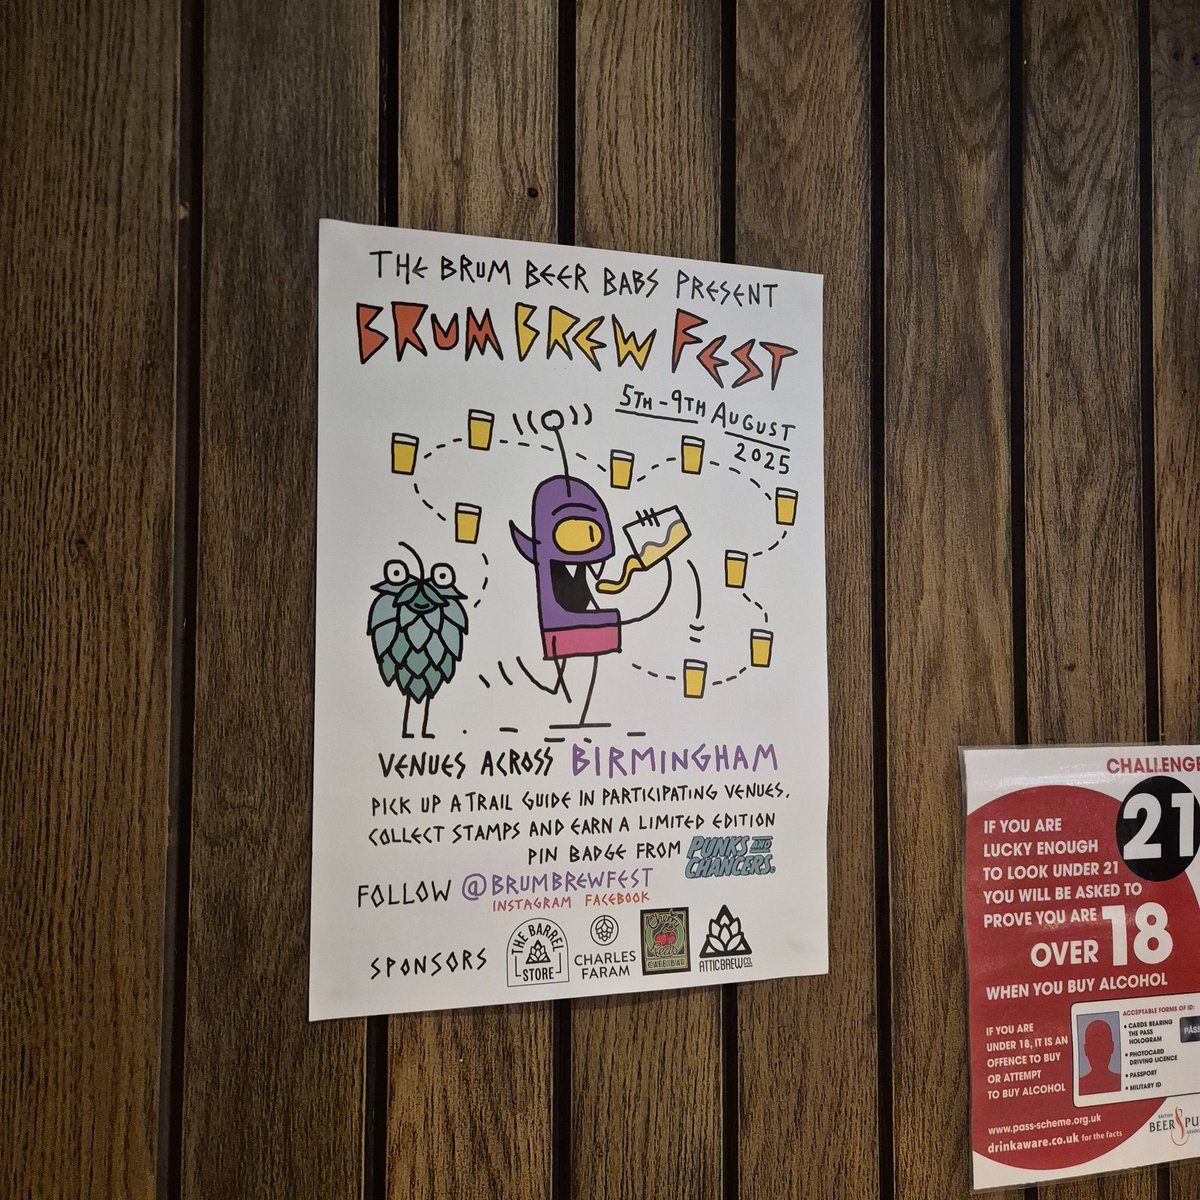 THE BRUM BEER BABS PRESENT
BRUM BREW FEST
5TH - 9TH AUGUST
2025
VENUES ACROSS BIRMINGHAM
PICK UP A TRAIL GUIDE IN PARTICIPATING VENUES.
COLLECT STAMPS AND EARN A LIMITED EDITION
PIN BADGE FROM PUNKS AND CHANCERS.
FOLLOW @BRUMBREWFEST
INSTAGRAM FACEBOOK
SPONSORS
THE BARREL
STORE
CHARLES
FARAM
CAFE BAR
ATTIC BREW CO.
CHALLENGE
21
IF YOU ARE
LUCKY ENOUGH
TO LOOK UNDER 21
YOU WILL BE ASKED TO
PROVE YOU ARE
OVER 18
WHEN YOU BUY ALCOHOL
IF YOU ARE
UNDER 18, IT IS AN
OFFENCE TO BUY
OR ATTEMPT
TO BUY ALCOHOL
ACCEPTABLE FORMS OF ID:
• CARDS BEARING
THE PASS
HOLOGRAM
• PHOTOCARD
DRIVING LICENCE
• PASSPORT
• MILITARY ID
PASS
www.pass-scheme.org.uk
drinkaware.co.uk for the facts
BRITISH
BEER & PU